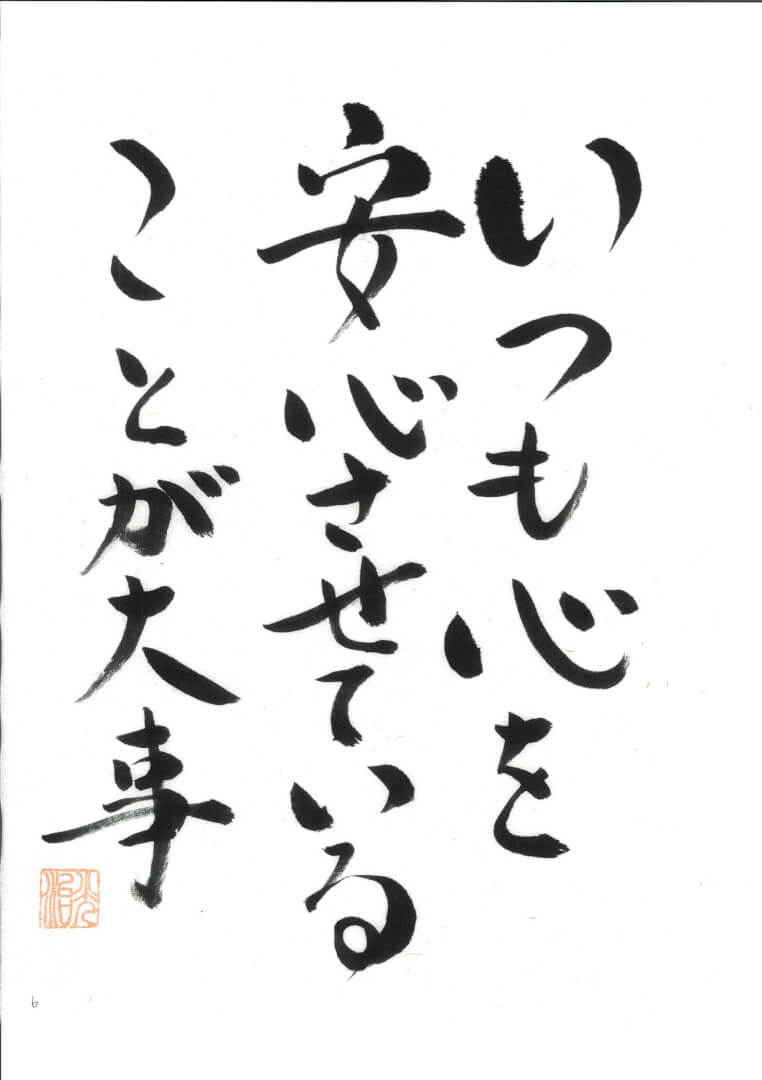 いつも心を
安心させている
ことが大事
6